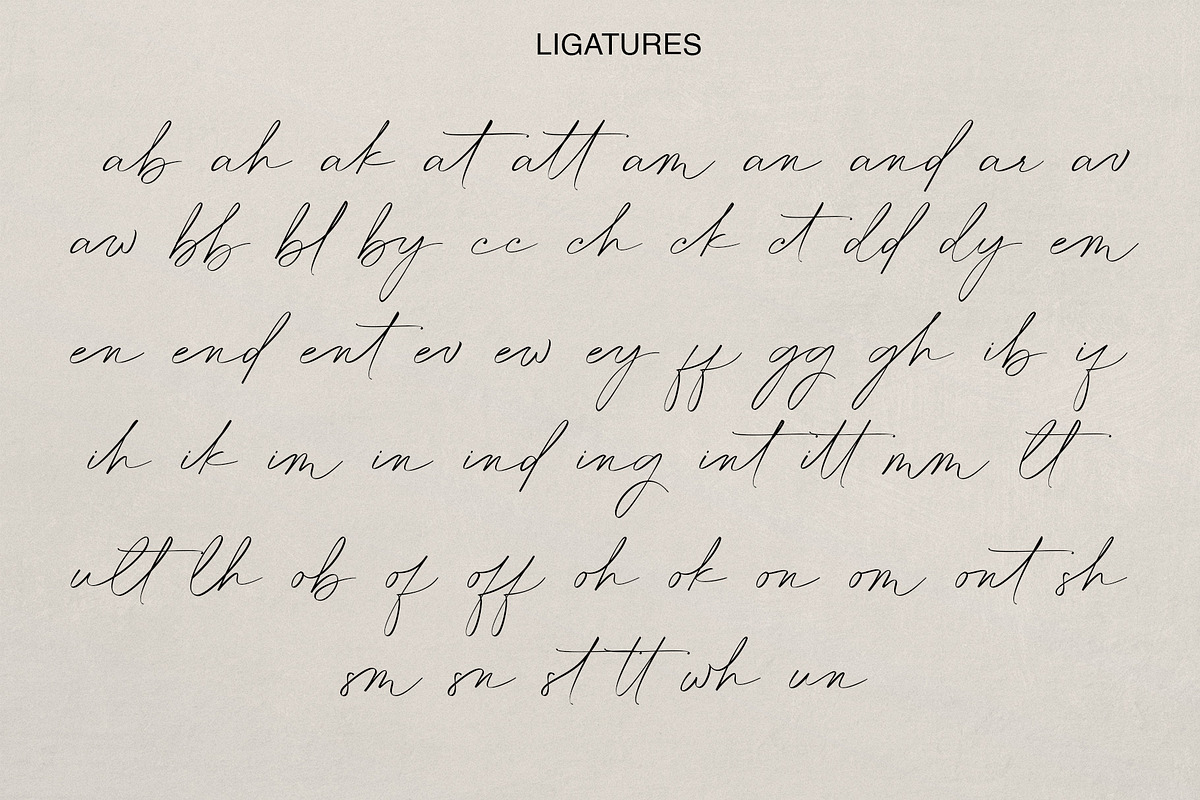 LIGATURES
ab ah ak at att am an and ar av
aw bb bl by cc ch ck ct dd dy em
en end ent ev ew ey ff gg gh ib if
ih ik im in ind ing int itt mm lt
ult lh ob of off oh ok on om ont sh
sm sn st tt wh un